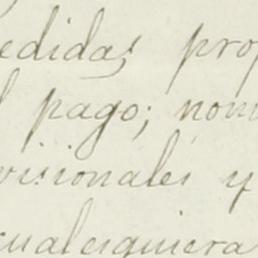 edidas prop
l pago; nom
visionales y
cualesquiera